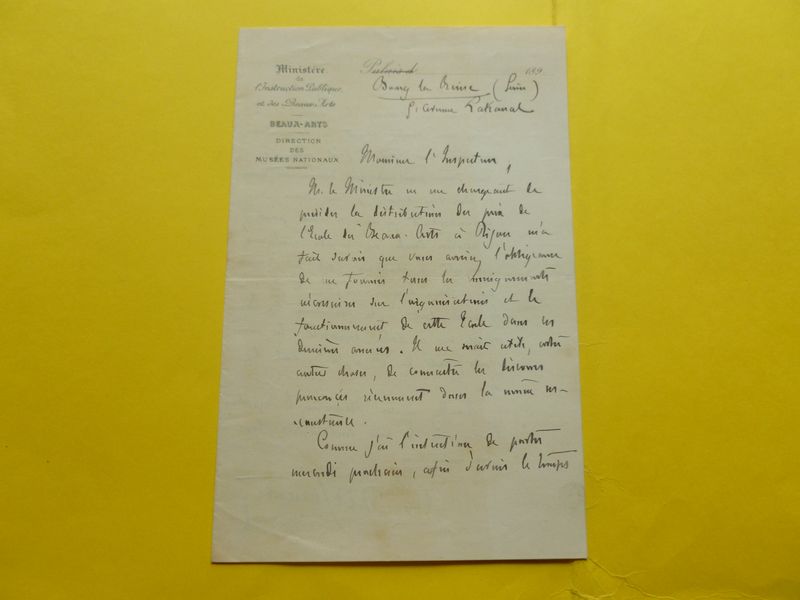 Ministère
de
l'Instruction Publique
et des Beaux-Arts
BEAUX-ARTS
DIRECTION
DES
MUSÉES NATIONAUX
Palais d 189
Bourg la Reine (Seine)
9, Avenue Lakanal
Monsieur l'Inspecteur,
M. le Ministre en me chargeant de
présider la distribution des prix de
l'Ecole des Beaux-Arts à Dijon m'a
fait savoir que vous auriez l'obligeance
de me fournir tous les renseignements
nécessaires sur l'organisation et le
fonctionnement de cette Ecole dans ces
dernières années. Il me serait utile, entre
autres choses, de connaître les discours
prononcés récemment dans la même cir-
constance.
Comme j'ai l'intention de partir
mercredi prochain, afin d'avoir le temps